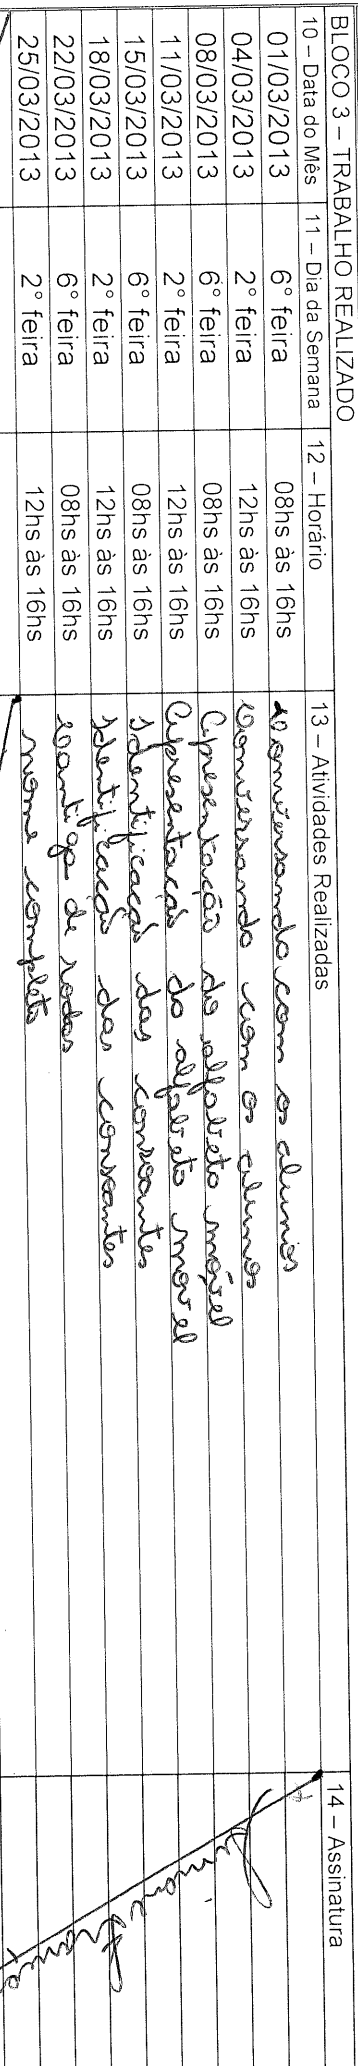 BLOCO 3 – TRABALHO REALIZADO
10 – Data do Mês 11 – Dia da Semana 12 – Horário 13 – Atividades Realizadas 14 – Assinatura
01/03/2013 6° feira 08hs às 16hs conversando com os alunos
04/03/2013 2° feira 12hs às 16hs conversando com os alunos
08/03/2013 6° feira 08hs às 16hs Apresentação do alfabeto móvel
11/03/2013 2° feira 12hs às 16hs Apresentação do alfabeto movel
15/03/2013 6° feira 08hs às 16hs Identificação das consoantes
18/03/2013 2° feira 12hs às 16hs Identificação das consoantes
22/03/2013 6° feira 08hs às 16hs cantiga de rodas
25/03/2013 2° feira 12hs às 16hs nome completo